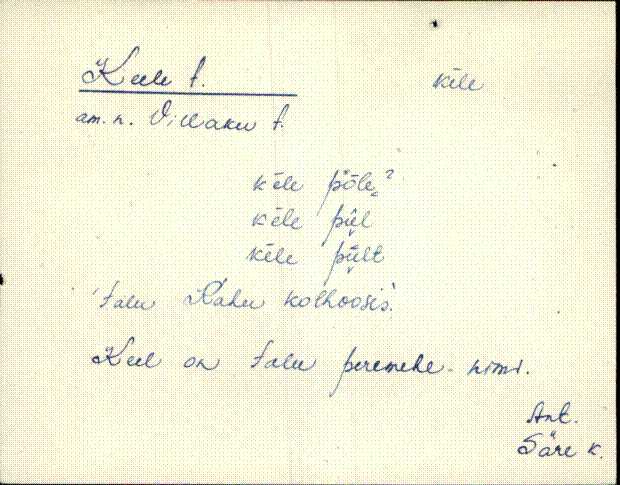 Keele t.
kēle
am. n. Villaku t.
kēle pȫle?
kēle pǖl
kēle pǖlt
Talu Rahu kolhoosis.
Keel on talu peremehe nimi.
Ant.
Säre k.